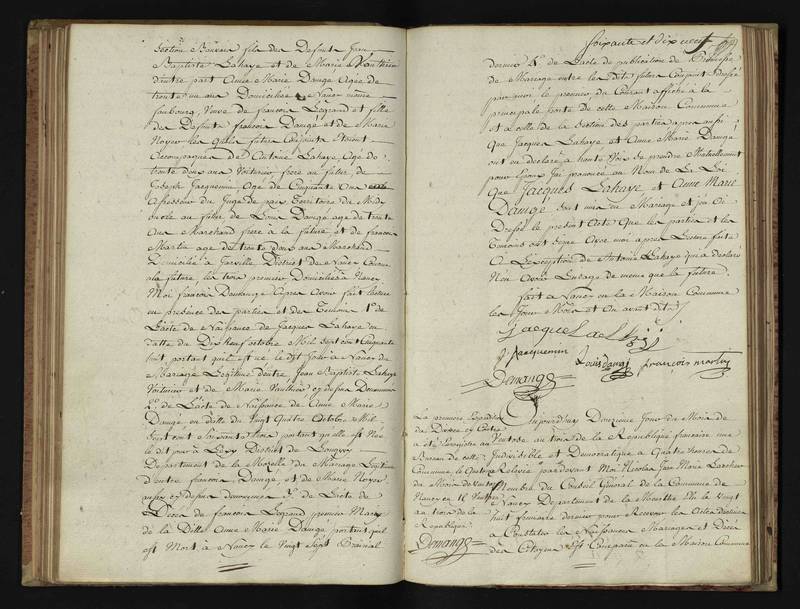 Section Bauvais fils des Defunts Jean
Baptiste Lahaye et de Marie Vauthier
d'autre part Anne Marie Daugé Agée de
trente un ans Domiciliée a Nancy même
faubourg, Veuve de françois Legrand et fille
des Defunts françois Daugé et de Marie
Noyer les quels futurs Conjoints étoient
Accompagnés de Antoine Lahaye Agé de
trente deux ans Voiturier frere au futur, de
Joseph Jacquemin Agé de Cinquante Ans
Assesseur du Juge de paix Territoire du Midy
oncle au futur de Louis Daugé agé de trente
Ans Marchand frere à la future et de francois
Martin agé de trente deux ans Marchand
Domicilié à Jarville District de Nancy Cousin
a la future les trois premiers Domiciliés à Nancy
Moi françois Demange Apres Avoir fait lecture
en présence des parties et des Temoins 1° de
L'acte de Naissance de Jacques Lahaye en
datte du Dix Neuf octobre Mil Sept cent Cinquante
huit portant qu'il est né le dit Jour à Nancy du
Mariage Legitime d'entre Jean Baptiste Lahaye
Voiturier et de Marie Vauthier cy devant Denommés
2° de L'acte de Naissance de Anne Marie
Daugé en datte du Vingt Quatre Octobre Mil
Sept cent Soixante trois portant qu'elle est Née
le dit jour à Lexy District de Longwy
Departement de la Mozelle du Mariage Legitime
d'entre francois Daugé et de Marie Noyer
aussy cy devant denommés 3° de L'acte de
Décés de francois Legrand premier Mary
de la Ditte Anne Marie Daugé, portant qu'il
est Mort à Nancy le Vingt Sept Prairial
Soixante et dix neuf
dernier 4° de L'acte de publication de Promesse
de Mariage entre les dits futurs Conjoints dressée
par moi le premier du Courant affiché à la
principale porte de cette Maison Commune
et a Celle de la Section des parties apres aussi
Que Jacques Lahaye et Anne Marie Daugé
ont eu declaré a haute Voix se prendre Mutuellement
pour Epoux J'ai prononcé au Nom de La Loi
Que Jacques Lahaye et Anne Marie
Daugé sont unis en Mariage et j'ai
Dressé le present Acte Que les parties et les
Temoins ont signé Avec moi apres Lecture faite
A L'exception de Antoine Lahaye qui a declaré
N'en Avoir L'usage de meme que la future
fait a Nancy en la Maison Commune
les Jour Mois et An avant dits
Jacque
J Jacquemin Louis daugé francois martin
Demange
La premiere Expedition
du Divorce cy Contre
a été
Bureau de cette
Commune, le
du Mois de Ventose
Nancy en 16 Ventose
au trois de la
Republique
Demange
Aujourd'huy Douzieme Jour du Mois de
Ventose au trois de la Republique francaise une
Indivisible et Democratique a Quatre heures de
Relevée pardevant Moi Nicolas Jean Marie Larcher
Membre du Conseil Général de la Commune de
Nancy Departement de la Meurthe Elu le Vingt
huit Frimaire dernier pour Recevoir les Actes destinés
a Constater les Naissances Mariages et Décés
des Citoyens Est Comparu en la Maison Commune